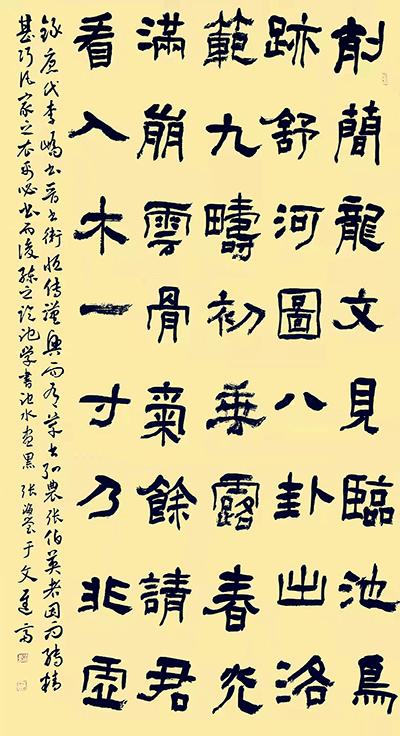 削簡龍文見臨池鳥
跡舒河圖八卦出洛
範九疇初垂露春光
滿崩雲骨氣餘請君
看入木一寸乃非虛
錄唐代李嶠書晉書衛恒傳漢興而有草書弘農張伯英者因而轉精
甚巧凡家之衣帛必書而後練之臨池學書池水盡黑 張海于文齋